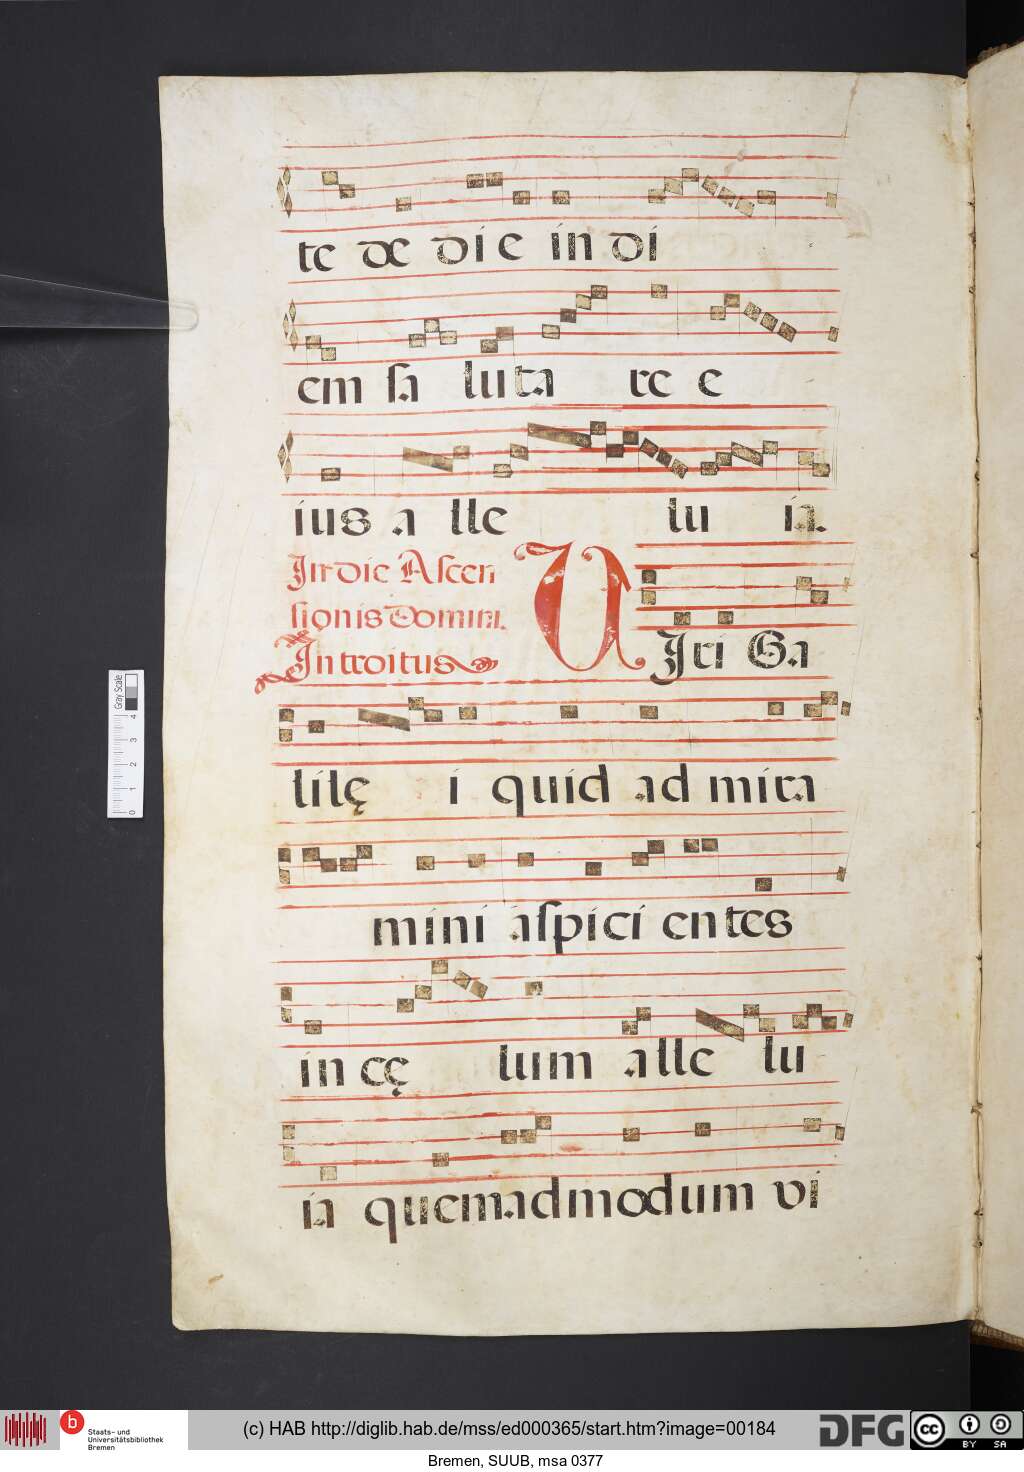 te de die in di
em sa luta re e
ius a lle lu ia.
In die Ascen
sionis Domini.
Introitus
VIri Ga
lilę i quid ad mira
mini aspici entes
in cę lum alle lu
ia quemadmodum vi
Gray Scale
0 1 2 3 4
b Staats- und
Universitätsbibliothek
Bremen
(c) HAB http://diglib.hab.de/mss/ed000365/start.htm?image=00184
DFG
cc BY SA
Bremen, SUUB, msa 0377